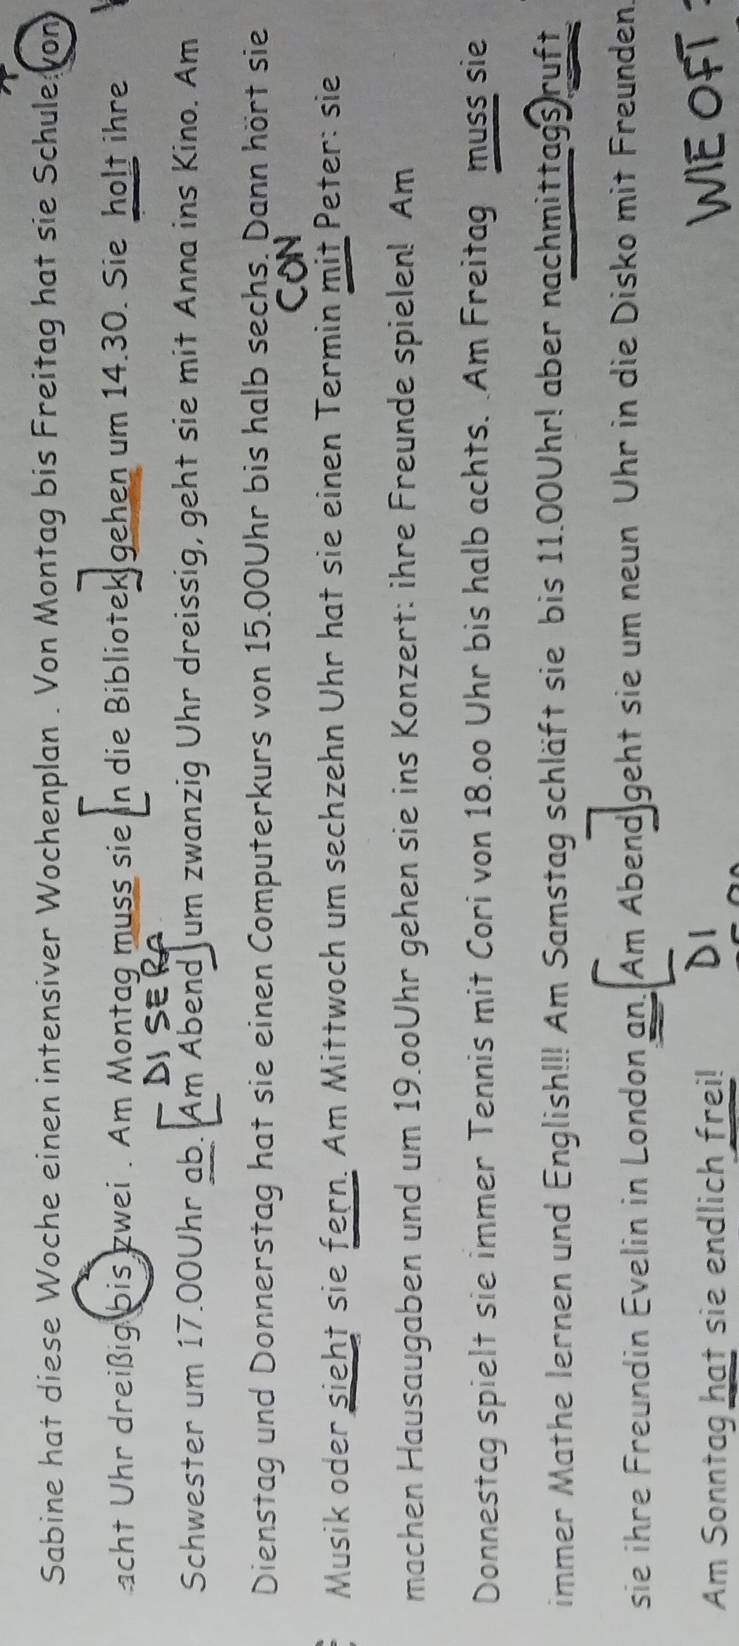 Sabine hat diese Woche einen intensiver Wochenplan . Von Montag bis Freitag hat sie Schule: von
acht Uhr dreißig bis zwei . Am Montag muss sie in die Bibliotek gehen um 14.30. Sie holt ihre
DI SERA
Schwester um 17.00Uhr ab. Am Abend um zwanzig Uhr dreissig, geht sie mit Anna ins Kino. Am
Dienstag und Donnerstag hat sie einen Computerkurs von 15.00Uhr bis halb sechs. Dann hört sie
CON
Musik oder sieht sie fern. Am Mittwoch um sechzehn Uhr hat sie einen Termin mit Peter: sie
machen Hausaugaben und um 19.00Uhr gehen sie ins Konzert: ihre Freunde spielen! Am
Donnestag spielt sie immer Tennis mit Cori von 18.00 Uhr bis halb achts. .Am Freitag muss sie
immer Mathe lernen und English!!! Am Samstag schläft sie bis 11.00Uhr! aber nachmittags ruft
sie ihre Freundin Evelin in London an. Am Abend geht sie um neun Uhr in die Disko mit Freunden.
DI
WIE OFT
Am Sonntag hat sie endlich frei!